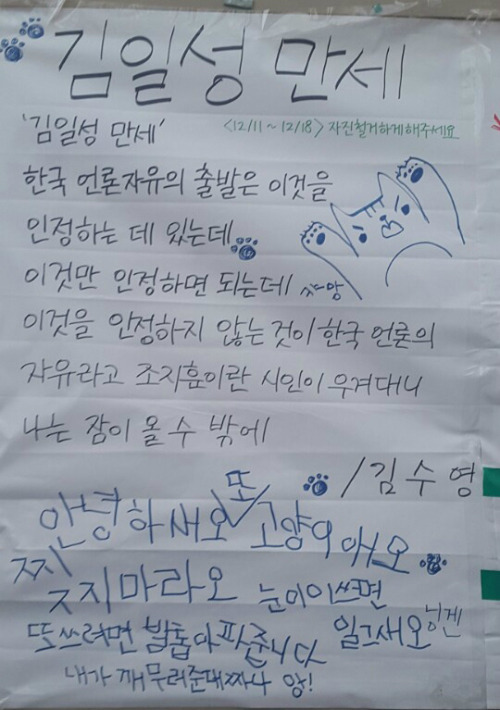 김일성 만세
'김일성 만세'
<12/11 ~ 12/18> 자진철거하게해주세요
한국 언론자유의 출발은 이것을
인정하는 데 있는데
이것만 인정하면 되는데
이것을 인정하지 않는 것이 한국 언론의
자유라고 조지훈이란 시인이 우겨대니
나는 잠이 올 수 밖에
/김수영
안녕하새오 또 고양이애오
찢지마라오 눈이이쓰면
일그새오 닝겐
또쓰려면 발톱아파
내가 깨무러준대짜나 앙!